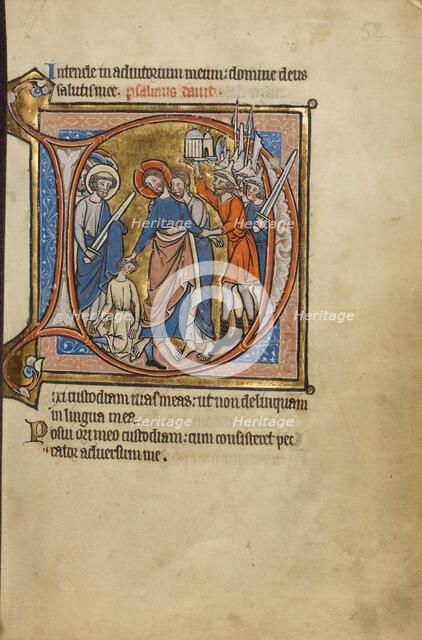 52
Intende in adiutorium meum: domine deus
salutis mee. psalmus dauit.
D
ixi custodiam uias meas: ut non delinquam
in lingua mea.
Posui ori meo custodiam: cum consisteret pec
cator aduersum me.
Heritage
Heritage
Heritage
Heritage
Heritage
Heritage